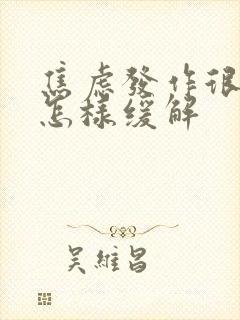 焦虑發作很
怎樣缓解
吴維昌